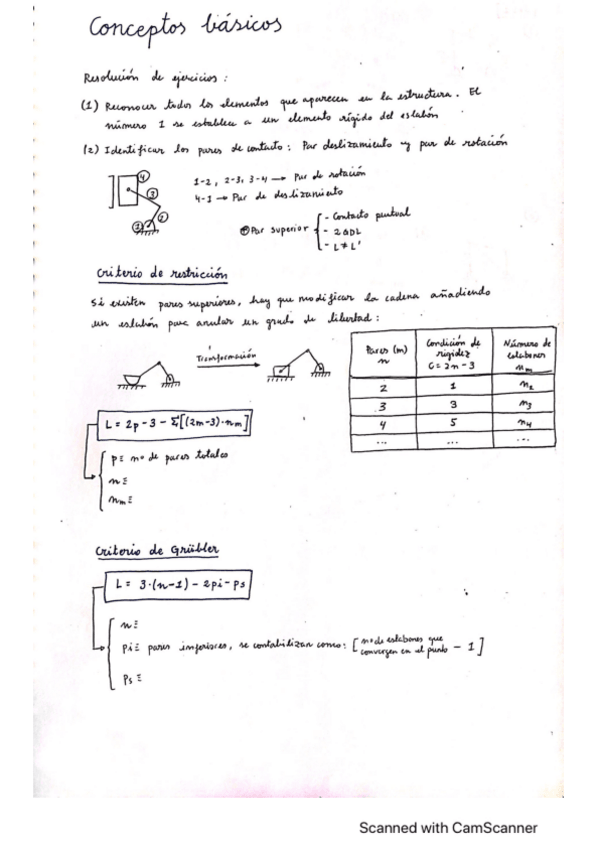 Conceptos básicos
Resolución de ejercicios:
(1) Reconocer todos los elementos que aparecen en la estructura. El
número 1 se establece a un elemento rígido del eslabón
(2) Identificar los pares de contacto: Par deslizamiento y par de rotación
4
3
2
1
1-2, 2-3, 3-4 → Par de rotación
4-1 → Par de deslizamiento
Par superior
- Contacto puntual
- 2 GDL
- L ≠ L'
Criterio de restricción
Si existen pares superiores, hay que modificar la cadena añadiendo
un eslabón para anular un grado de libertad:
Transformación
Pares (m) n | Condición de rigidez C = 2n-3 | Número de eslabones nm
2 | 1 | n2
3 | 3 | n3
4 | 5 | n4
... | ... | ...
L = 2p - 3 - Σ[(2m-3)·nm]
p ≡ nº de pares totales
n ≡
nm ≡
Criterio de Grübler
L = 3·(n-1) - 2pi - ps
n ≡
pi ≡ pares inferiores, se contabilizan como: [nº de eslabones que convergen en el punto - 1]
ps ≡
Scanned with CamScanner